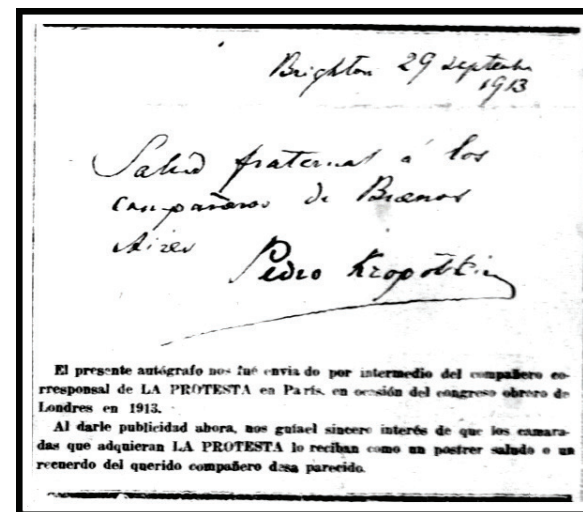 Brighton 29 septembre
1913
Salud fraternal á los
compañeros de Buenos
Aires
Pedro Kropotkin
El presente autógrafo nos fué envia do por intermedio del compañero co-
rresponsal de LA PROTESTA en París, en ocasión del congreso obrero de
Londres en 1913.
Al darle publicidad ahora, nos guíael sincero interés de que los camara-
das que adquieran LA PROTESTA lo reciban como un postrer saludo o un
recuerdo del querido compañero desa parecido.